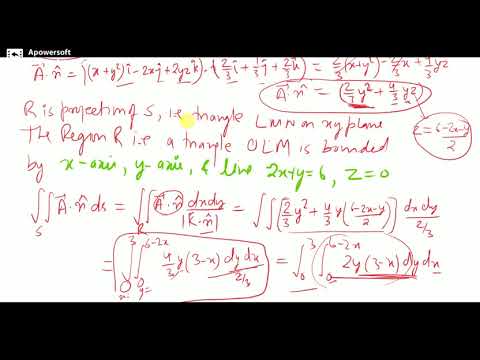 Apowersoft
A⃗·n̂ = ((x+y²)î - 2xĵ + 2yzk̂)·(2/3 î + 1/3 ĵ + 2/3 k̂) = 2/3(x+y²) - 2/3x + 4/3yz
A⃗·n̂ = (2/3 y² + 4/3 yz)
R is projection of S, i.e triangle LMN on xy plane
z = 6-2x-y/2
The Region R i.e a triangle OLM is bounded
by x-axis, y-axis, & line 2x+y=6, z=0
∬_S A⃗·n̂ ds = ∬_R A⃗·n̂ dxdy/|k̂·n̂| = ∬[2/3 y² + 4/3 y(6-2x-y/2)] dxdy/2/3
= ∫_{x=0}^{3} ∫_{y=0}^{6-2x} 4/3 y(3-x) dy dx/2/3 = ∫_0^3 ∫_0^{6-2x} 2y(3-x) dy dx